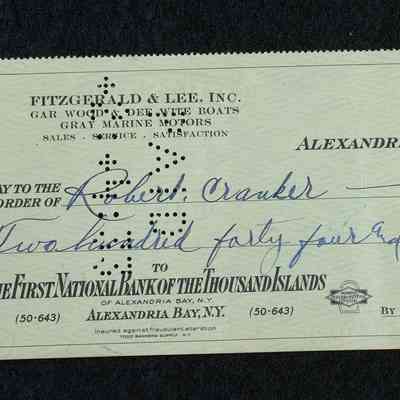 FITZGERALD & LEE, INC.
GAR WOOD & DEE WITE BOATS
GRAY MARINE MOTORS
SALES - SERVICE - SATISFACTION
ALEXANDRIA
AY TO THE
ORDER OF Robert Cranker
Two hundred forty four and
TO
HE FIRST NATIONAL BANK OF THE THOUSAND ISLANDS
OF ALEXANDRIA BAY, N.Y.
(50-643) ALEXANDRIA BAY, N.Y. (50-643) BY
Insured against fraudulent alteration